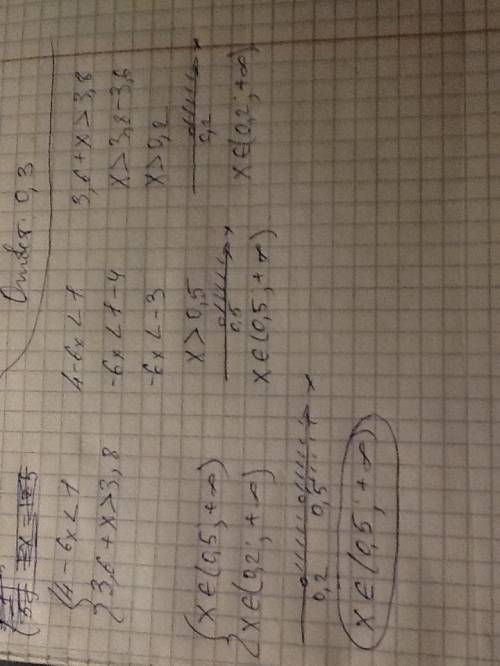 Ответ: 0,3
{4-6x<1
{3,6+x>3,8
4-6x<1
-6x<1-4
-6x<-3
x>0,5
0,5 x
x∈(0,5;+∞)
3,6+x>3,8
x>3,8-3,6
x>0,2
0,2 x
x∈(0,2;+∞)
{x∈(0,5;+∞)
{x∈(0,2;+∞)
0,2 0,5 x
x∈(0,5;+∞)